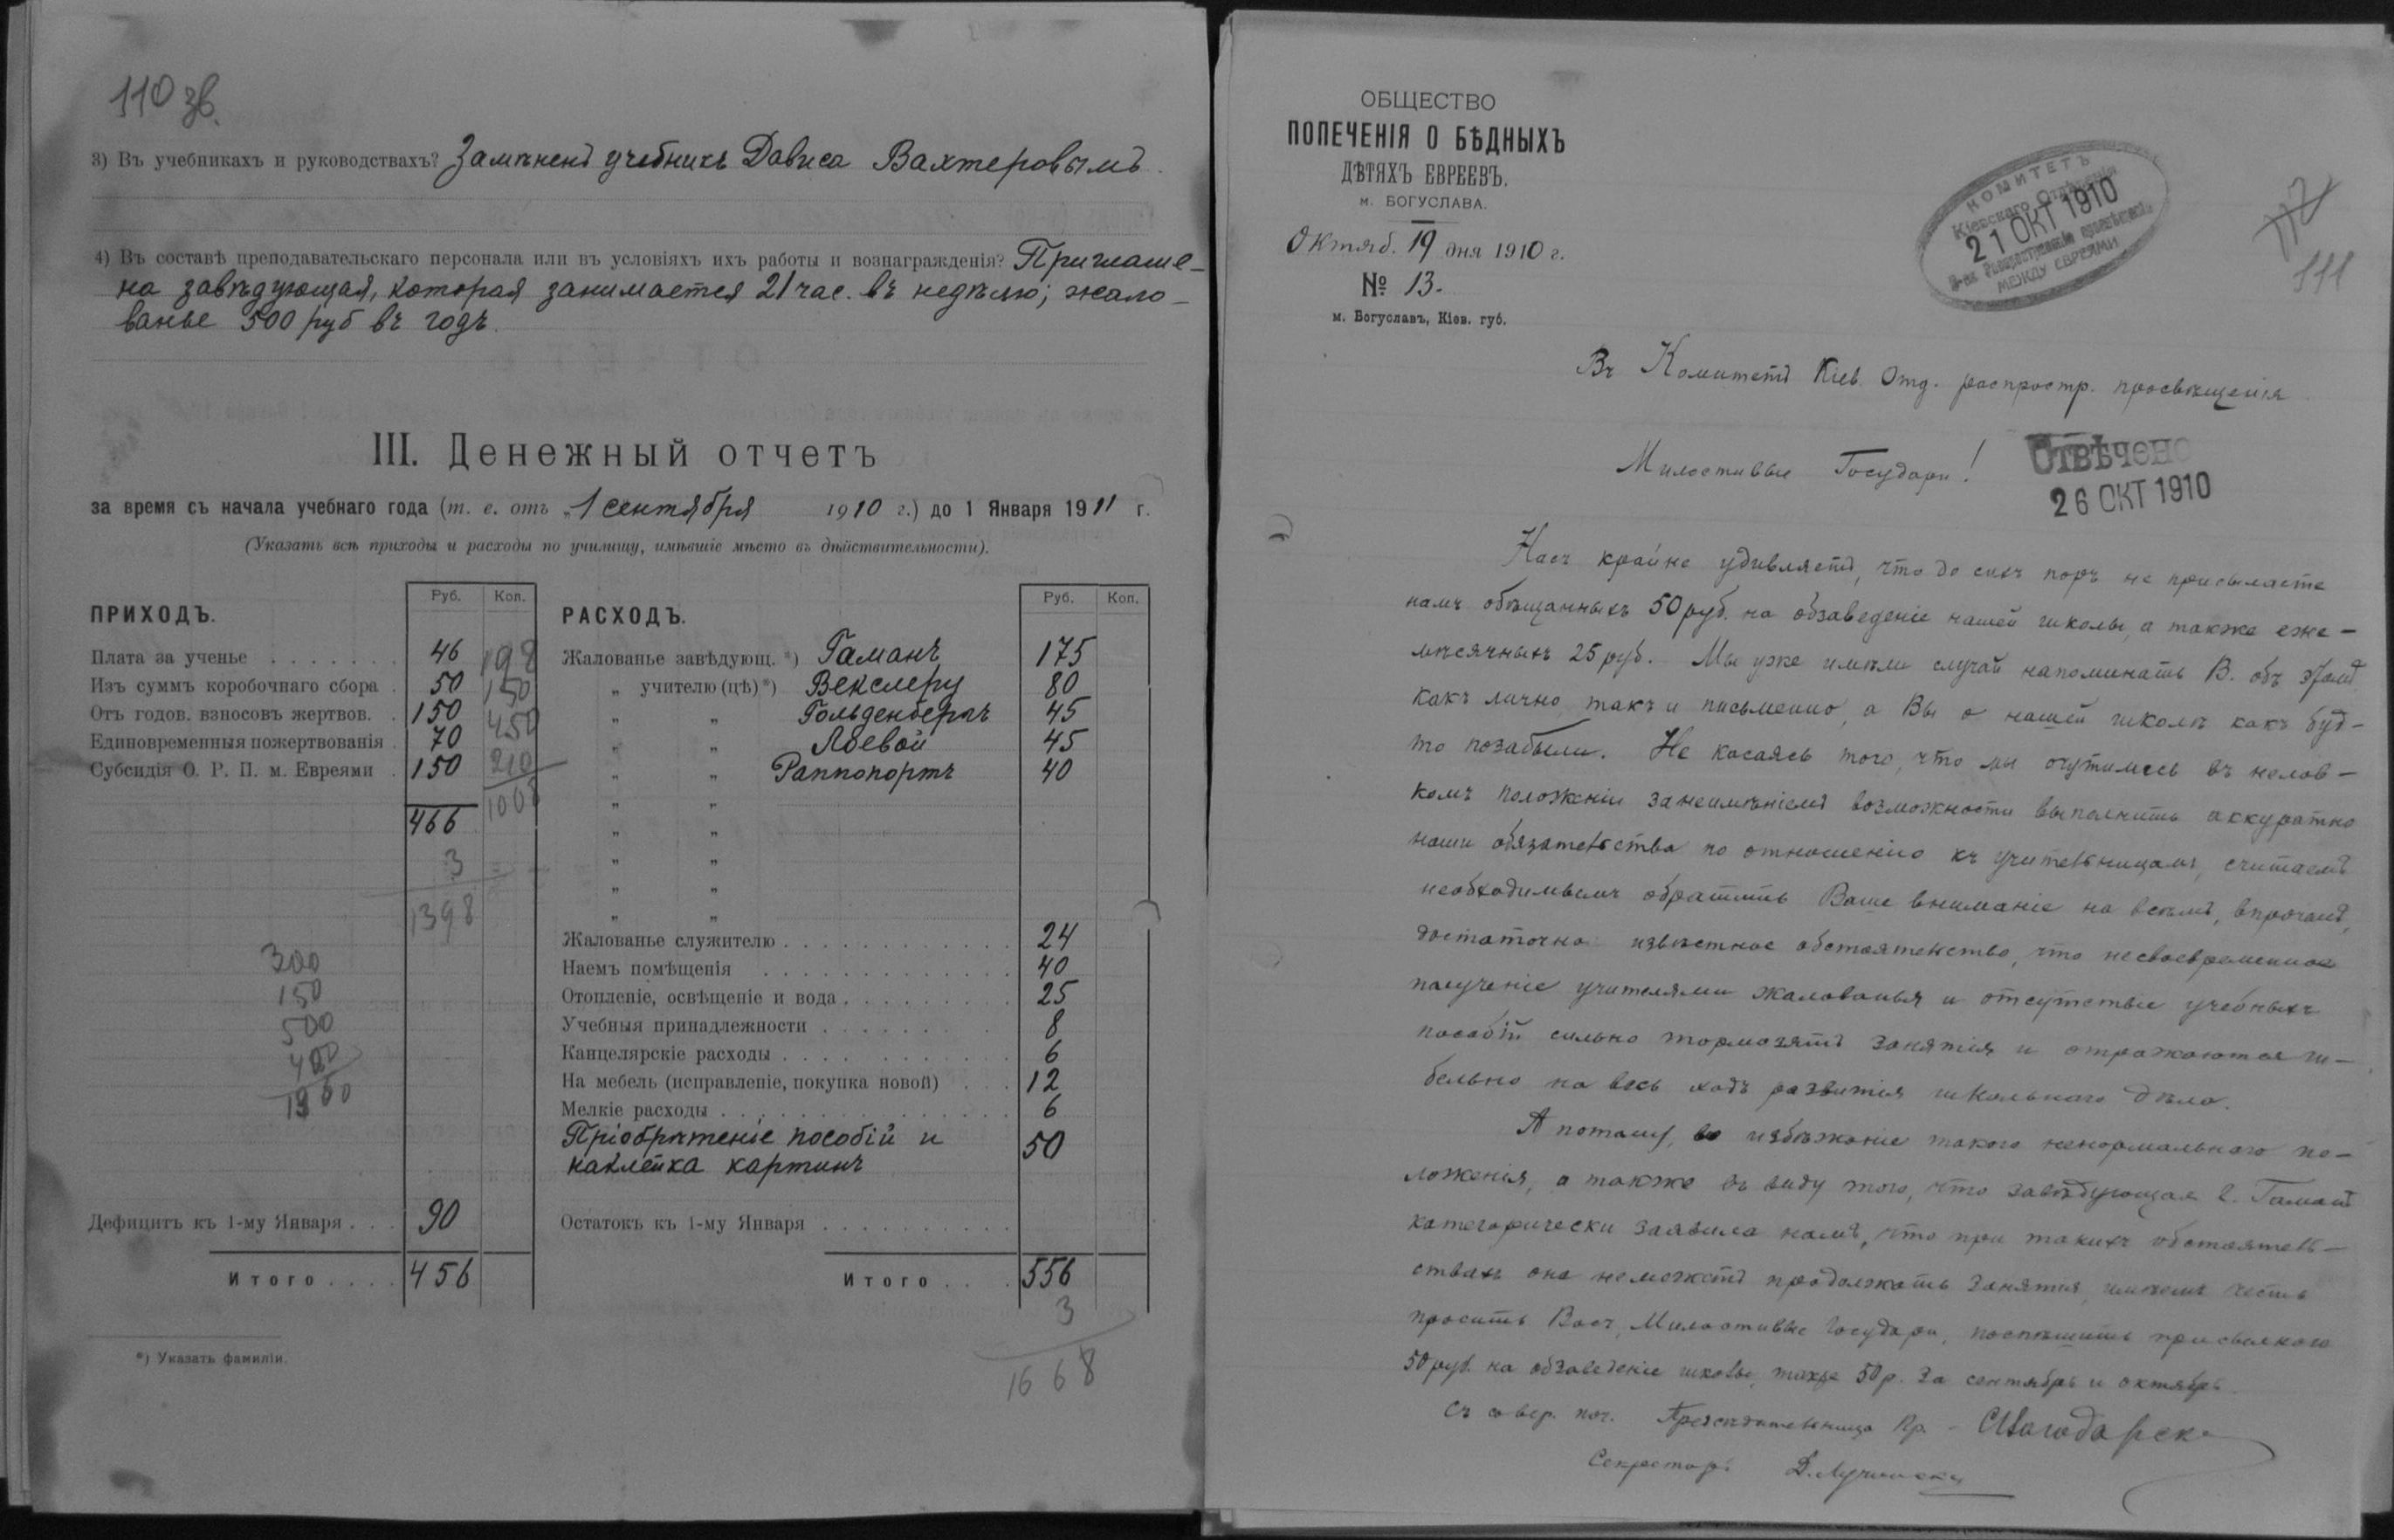 110 зв.
3) Въ учебникахъ и руководствахъ? Замѣненъ учебникъ Дависа Вахтеровымъ.
4) Въ составѣ преподавательскаго персонала или въ условіяхъ ихъ работы и вознагражденія? Приглаше-
на завѣдующая, которая занимается 21 час. въ недѣлю; жало-
ванье 500 руб въ годъ.
III. Денежный отчетъ
за время съ начала учебнаго года (т. е. отъ „1 сентября 1910 г.) до 1 Января 1911 г.
(Указать всѣ приходы и расходы по училищу, имѣвшіе мѣсто въ дѣйствительности).
ПРИХОДЪ. Руб. Коп.
Плата за ученье 46 198
Изъ суммъ коробочнаго сбора 50 150
Отъ годов. взносовъ жертвов. 150 450
Единовременныя пожертвованія 70 210
Субсидія О. Р. П. м. Евреями 150
1008
466
3
1398
300
150
500
400
Дефицитъ къ 1-му Января 90
Итого 456
РАСХОДЪ. Руб. Коп.
Жалованье завѣдующ. *) Гаманъ 175
„ учителю (цѣ) *) Векслеру 80
„ „ Гольденбергъ 45
„ „ Лоевой 45
„ „ Раппопортъ 40
„ „
„ „
„ „
„ „
„ „
Жалованье служителю 24
Наемъ помѣщенія 40
Отопленіе, освѣщеніе и вода 25
Учебныя принадлежности 8
Канцелярскіе расходы 6
На мебель (исправленіе, покупка новой) 12
Мелкіе расходы 6
Пріобрѣтеніе пособій и 50
наклейка картинъ
Остатокъ къ 1-му Января
Итого 556
3
1668
*) Указать фамиліи.
ОБЩЕСТВО
ПОПЕЧЕНІЯ О БѢДНЫХЪ
ДѢТЯХЪ ЕВРЕЕВЪ.
м. БОГУСЛАВА.
Октяб. 19 дня 1910 г.
№ 13.
м. Богуславъ, Кіев. губ.
КОМИТЕТЪ
Кіевскаго Отдѣленія
21 ОКТ 1910
МЕЖДУ ЕВРЕЯМИ
111
Въ Комитетъ Кіев. Отд. распростр. просвѣщенія
Милостивые Государи!
Отвѣчено
26 ОКТ 1910
Насъ крайне удивляетъ, что до сихъ поръ не присылаете
намъ обѣщанныхъ 50 руб. на обзаведеніе нашей школы, а также еже-
мѣсячныхъ 25 руб. Мы уже имѣли случай напоминать В. объ этомъ
какъ лично, такъ и письменно, а Вы о нашей школѣ какъ буд-
то позабыли. Не касаясь того, что мы очутились въ нелов-
комъ положеніи за неимѣніемъ возможности выполнить аккуратно
наши обязательства по отношенію къ учительницамъ, считаемъ
необходимымъ обратить Ваше вниманіе на всѣмъ, впрочемъ,
достаточно извѣстное обстоятельство, что несвоевременное
полученіе учителями жалованья и отсутствіе учебныхъ
пособій сильно тормозятъ занятія и отражаются ги-
бельно на весь ходъ развитія школьнаго дѣла.
А потому, во избѣжаніе такого ненормальнаго по-
ложенія, а также въ виду того, что завѣдующая г. Гаманъ
категорически заявила намъ, что при такихъ обстоятель-
ствахъ она не можетъ продолжать занятія, имѣемъ честь
просить Васъ, Милостивые Государи, поспѣшить присылкою
50 руб. на обзаведеніе школы, также 50 р. за сентябрь и октябрь.
Съ совер. поч. Предсѣдательница Пр.
Секретарь